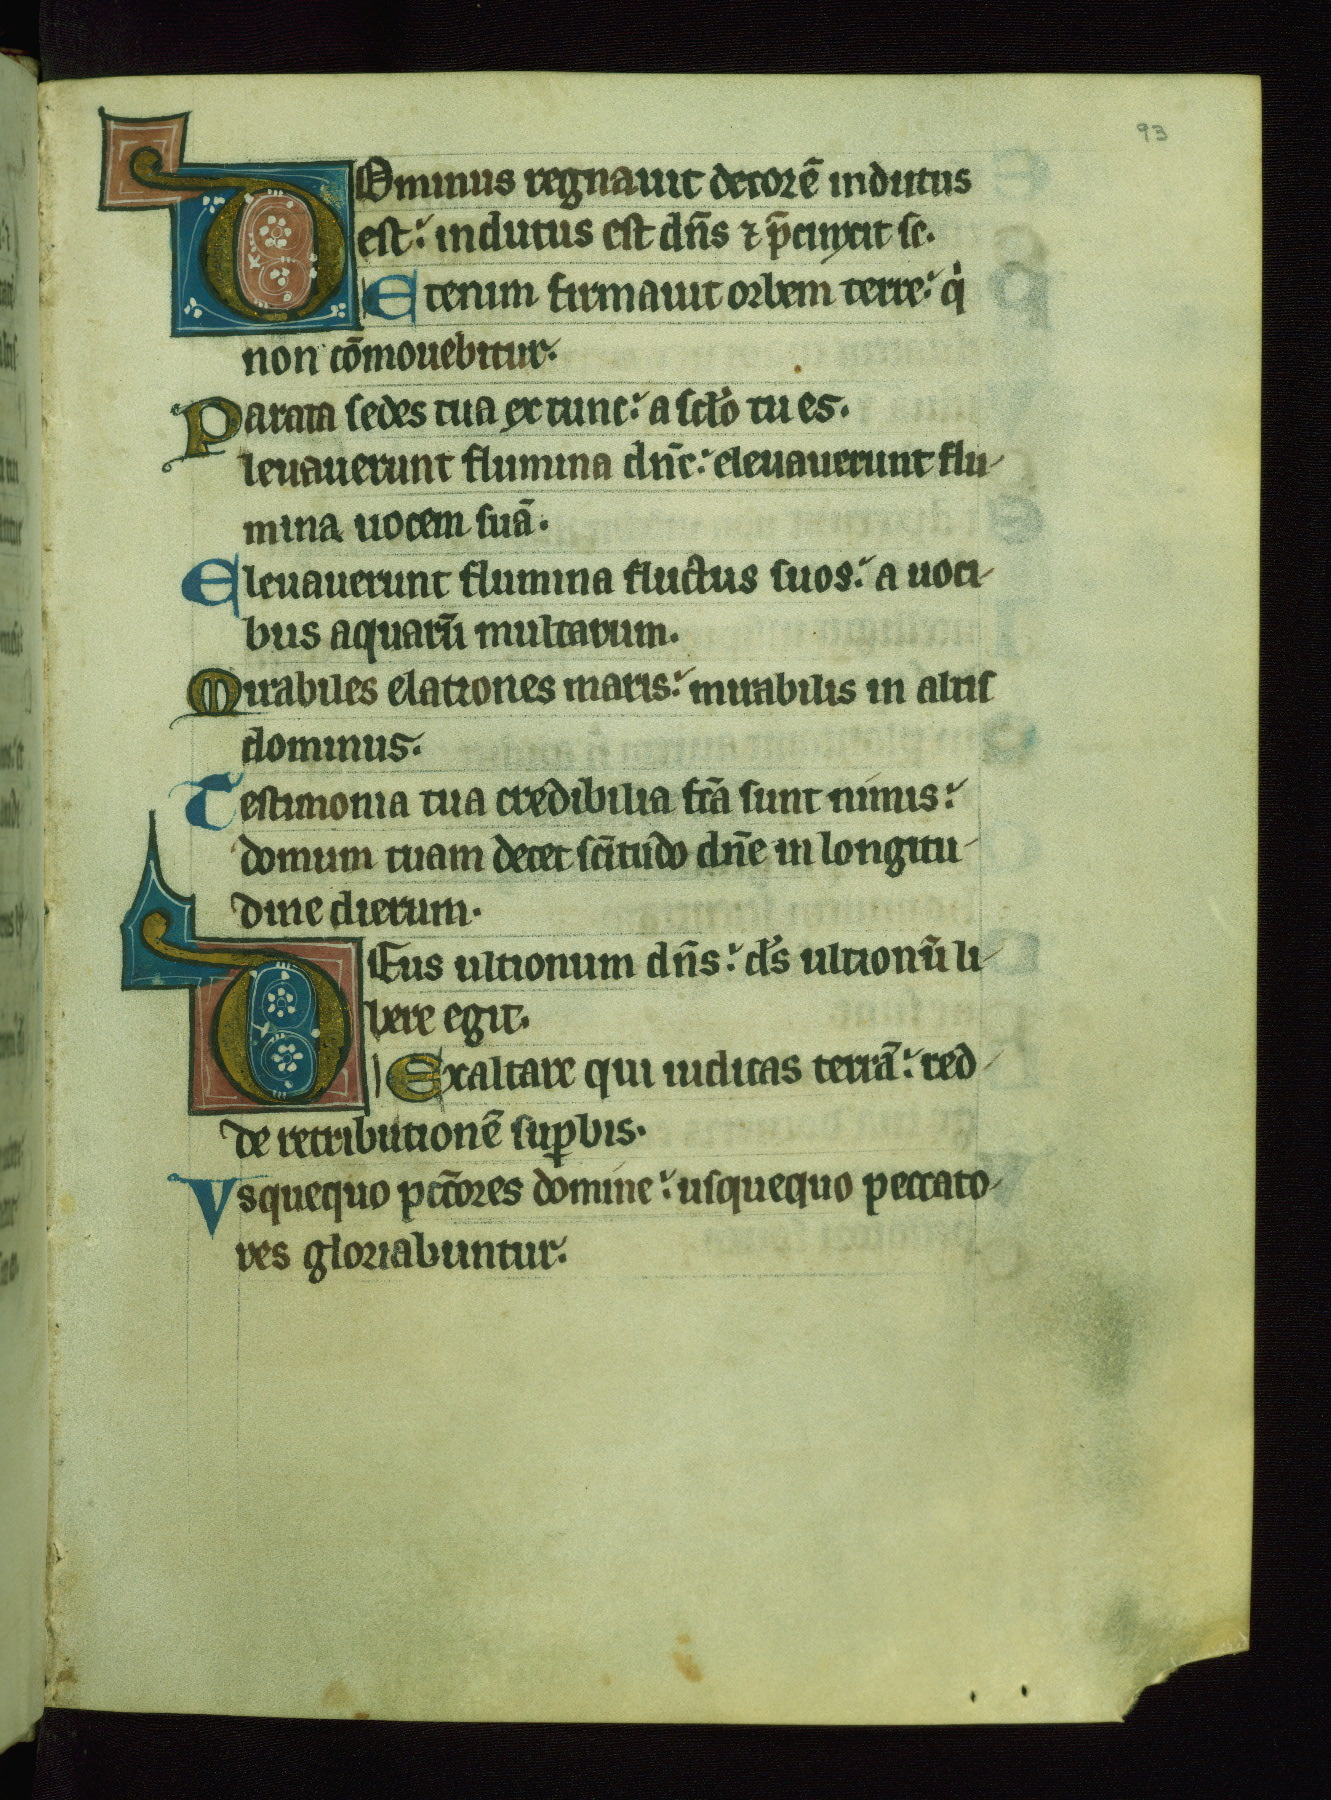 93
DOminus regnauit decorē indutus
est: indutus est dñs ⁊ p̄cinxit se.
Etenim firmauit orbem terre: qͥ
non cōmouebitur.
Parata sedes tua ex tunc: a sclo tu es.
leuauerunt flumina dñe: eleuauerunt flu
mina uocem suā.
Eleuauerunt flumina fluctus suos: a uoci
bus aquarū multarum.
Mirabiles elationes maris: mirabilis in altis
dominus.
Testimonia tua credibilia fcā sunt nimis:
domum tuam decet scītudo dñe in longitu
dine dierum.
DEus ultionum dñs: ds ultionū li
bere egit.
Exaltare qui iudicas terrā: red
de retributionē suꝑbis.
Vsquequo pctōres domine: usquequo peccato
res gloriabuntur.